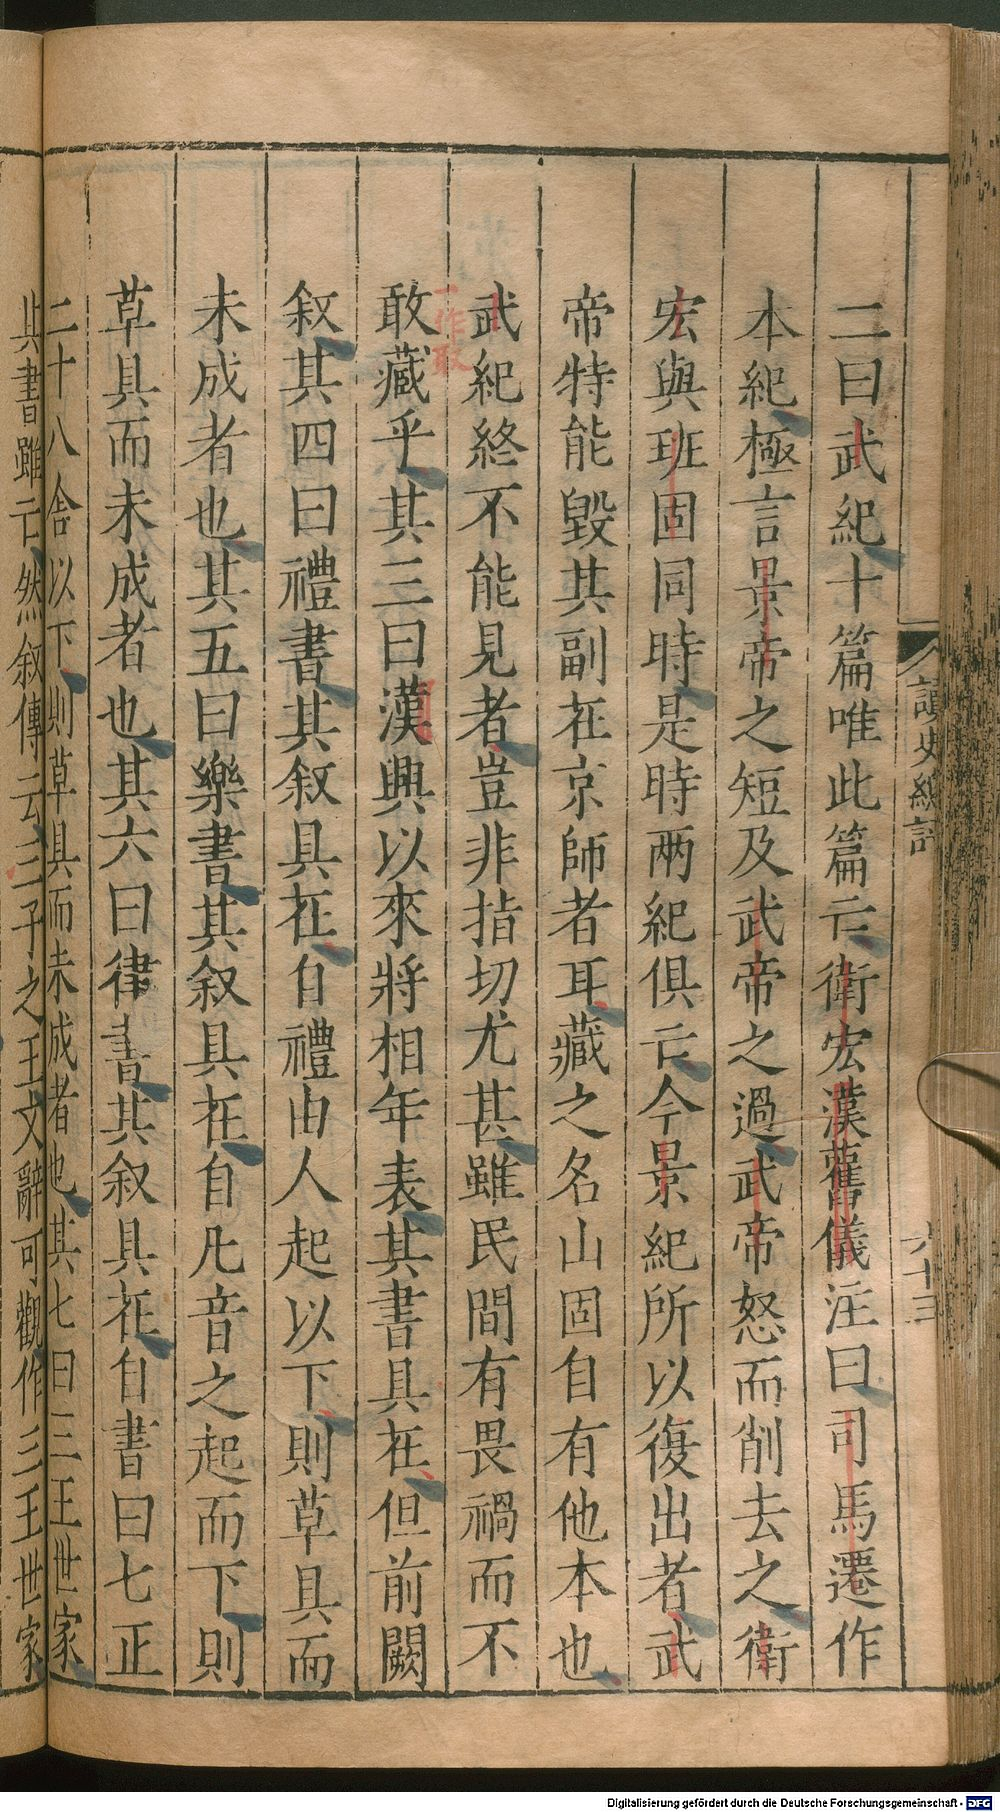 讀史總評
六十三
二曰武紀十篇唯此篇亡衛宏漢舊儀注曰司馬遷作
本紀極言景帝之短及武帝之過武帝怒而削去之衛
宏與班固同時是時兩紀俱亡今景紀所以復出者武
帝特能毀其副在京師者耳藏之名山固自有他本也
武紀終不能見者豈非指切尤甚雖民間有畏禍而不
一作敢
敢藏乎其三曰漢興以來將相年表其書具在但前闕
叙其四曰禮書其叙具在自禮由人起以下則草具而
未成者也其五曰樂書其叙具在自凡音之起而下則
草具而未成者也其六曰律書其叙具在自書曰七正
二十八舍以下則草具而未成者也其七曰三王世家
其書雖亡然叙傳云三子之王文辭可觀作三王世家
Digitalisierung gefördert durch die Deutsche Forschungsgemeinschaft - DFG